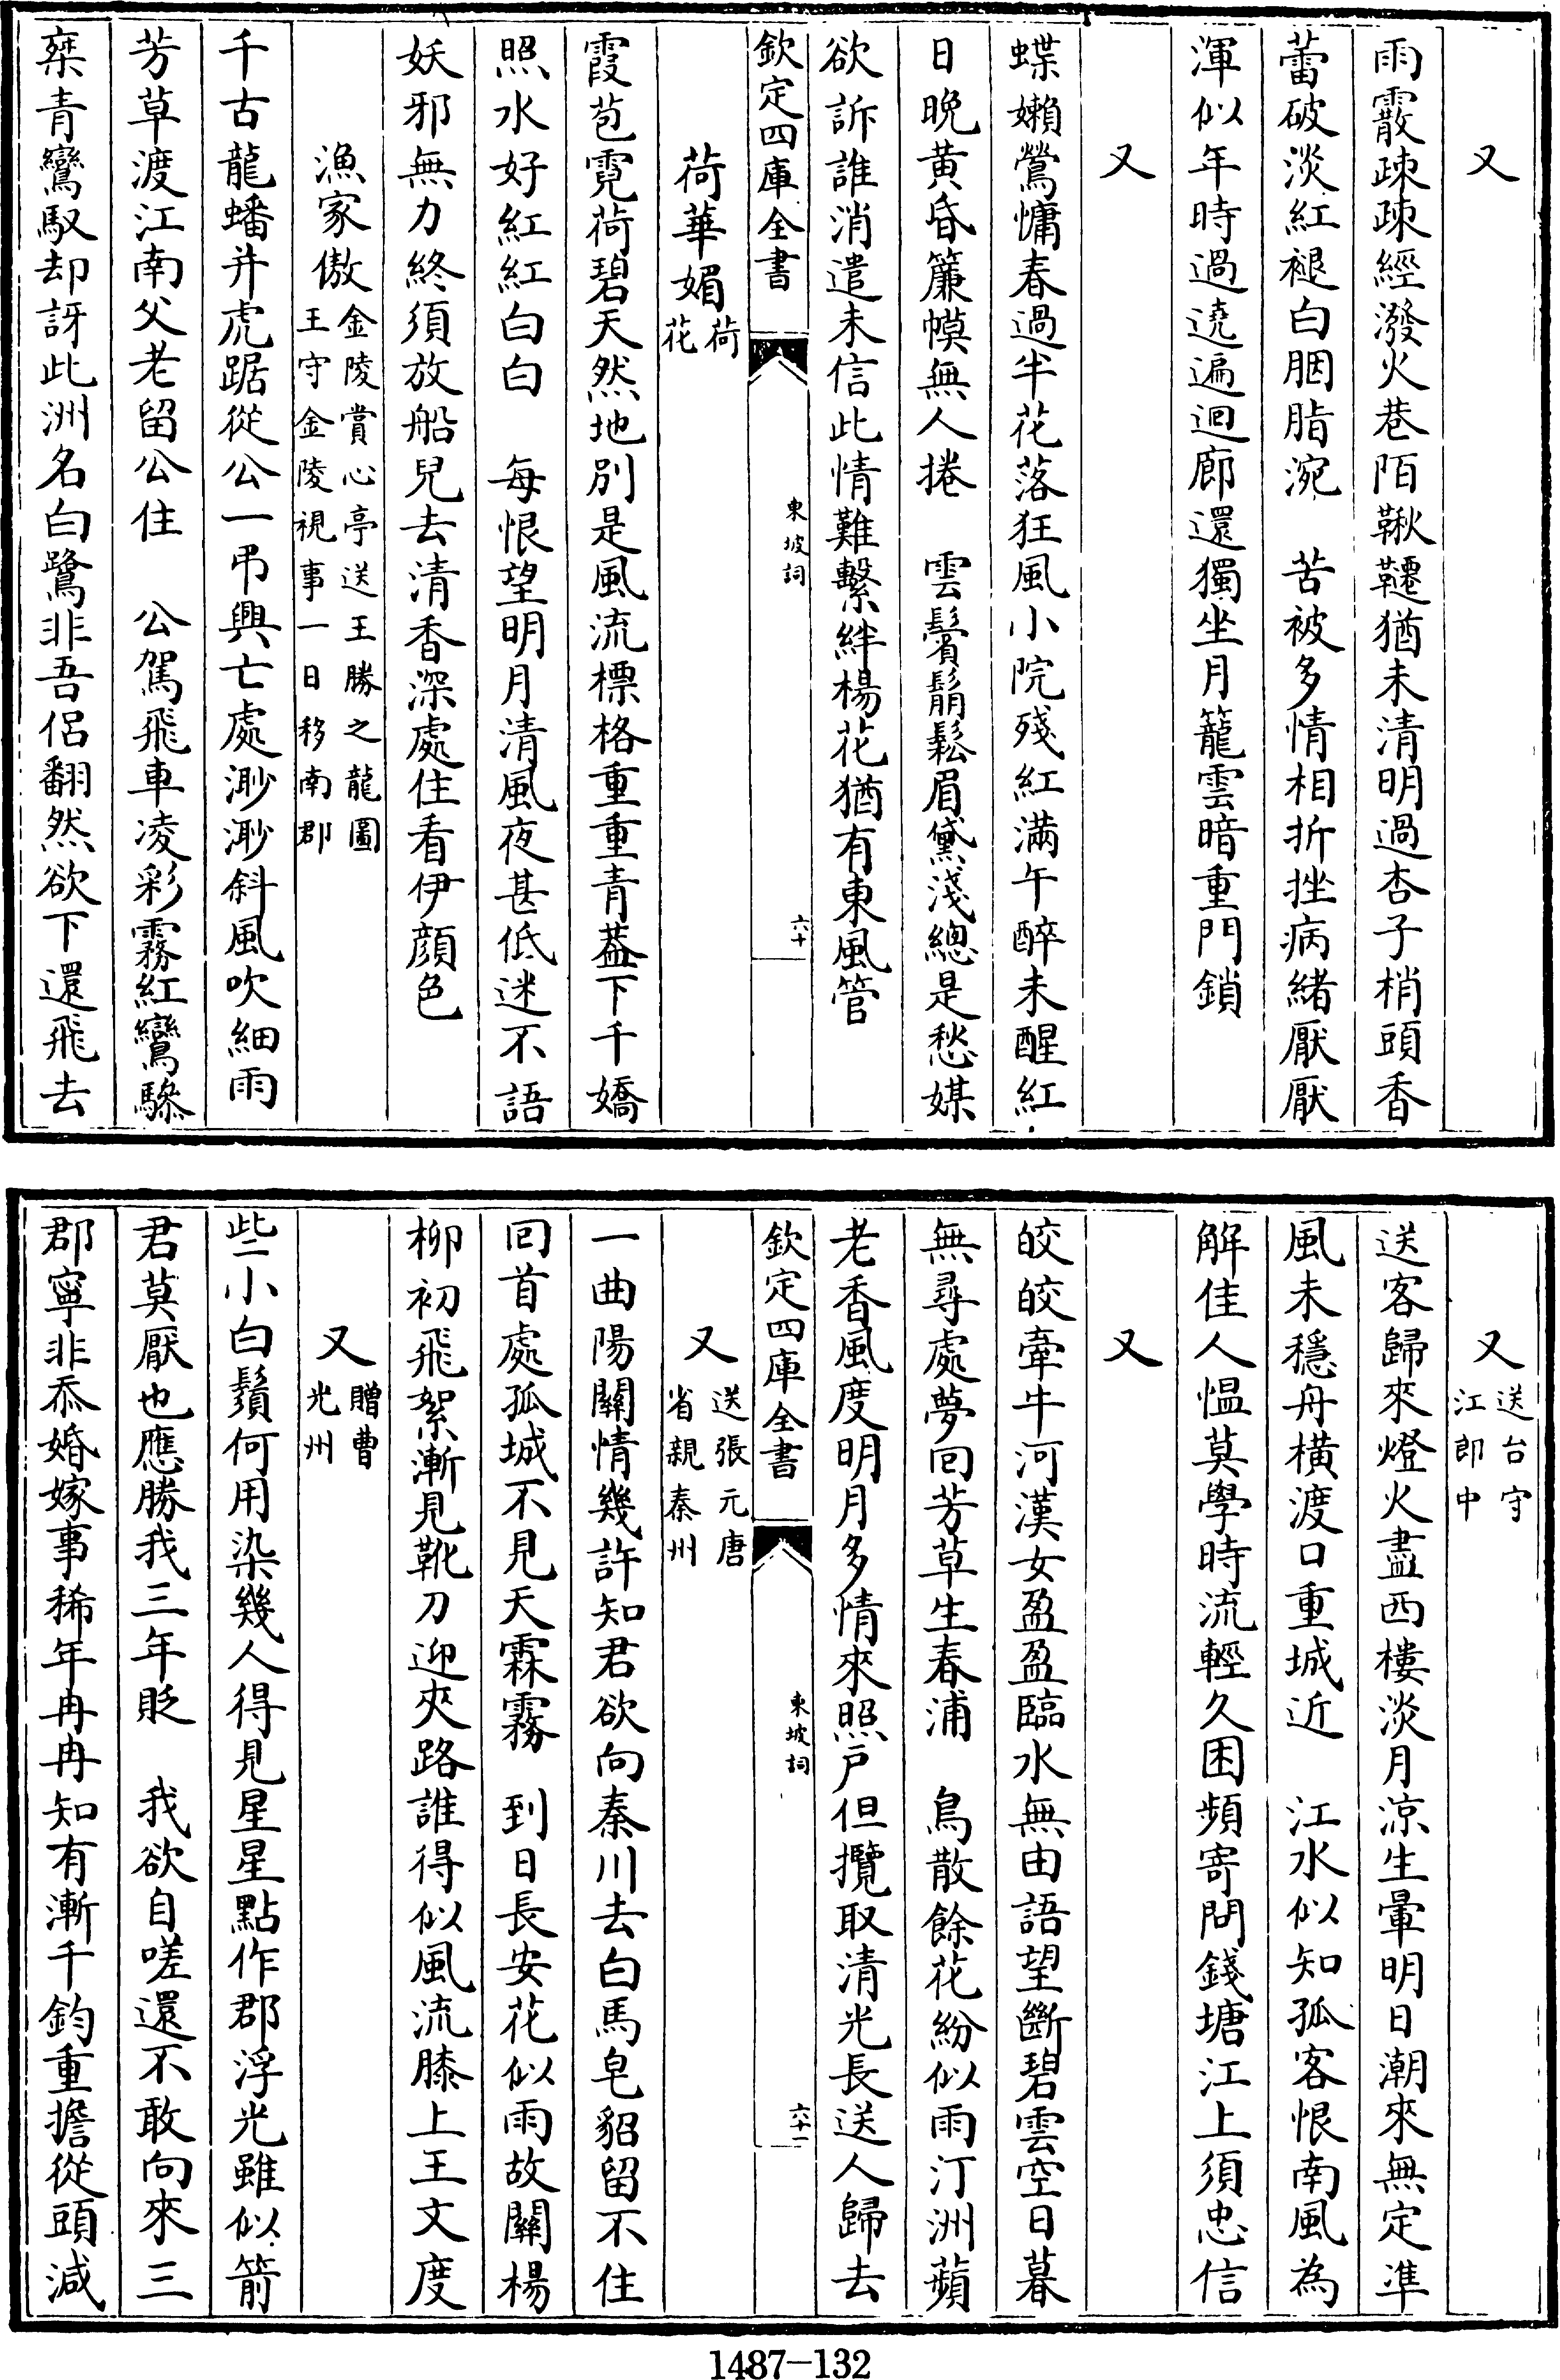 又
雨霰疎疎經潑火巷陌鞦韆猶未清明過杏子梢頭香
蕾破淡紅褪白胭脂涴　苦被多情相折挫病緒厭厭
渾似年時過遶遍迴廊還獨坐月籠雲暗重門鎖
又
蝶嬾鶯慵春過半花落狂風小院殘紅滿午醉未醒紅
日晚黄昏簾幙無人捲　雲鬢鬅鬆眉黛淺總是愁媒
欲訴誰消遣未信此情難繫絆楊花猶有東風管
欽定四庫全書
東坡詞
六十
荷華媚荷花
霞苞霓荷碧天然地別是風流標格重重青葢下千嬌
照水好紅紅白白　每恨望明月清風夜甚低迷不語
妖邪無力終須放船兒去清香深處住看伊顔色
漁家傲金陵賞心亭送王勝之龍圖王守金陵視事一日移南郡
千古龍蟠并虎踞從公一弔興亡處渺渺斜風吹細雨
芳草渡江南父老留公住　公駕飛車凌彩霧紅鸞驂
椉青鸞馭却訝此洲名白鷺非吾侣翻然欲下還飛去
又送台守江郎中
送客歸來燈火盡西樓淡月涼生暈明日潮來無定準
風未穩舟橫渡口重城近　江水似知孤客恨南風為
解佳人愠莫學時流輕久困頻寄問錢塘江上須忠信
又
皎皎牽牛河漢女盈盈臨水無由語望斷碧雲空日暮
無尋處夢回芳草生春浦　鳥散餘花紛似雨汀洲蘋
老香風度明月多情來照戸但攬取清光長送人歸去
欽定四庫全書
東坡詞
六十一
又送張元唐省親秦州
一曲陽關情幾許知君欲向秦川去白馬皂貂留不住
回首處孤城不見天霖霧　到日長安花似雨故關楊
柳初飛絮漸見靴刀迎夾路誰得似風流膝上王文度
又贈曹光州
些小白鬚何用染幾人得見星星點作郡浮光雖似箭
君莫厭也應勝我三年貶　我欲自嗟還不敢向來三
郡寧非忝婚嫁事稀年冉冉知有漸千鈞重擔從頭減
1487-132